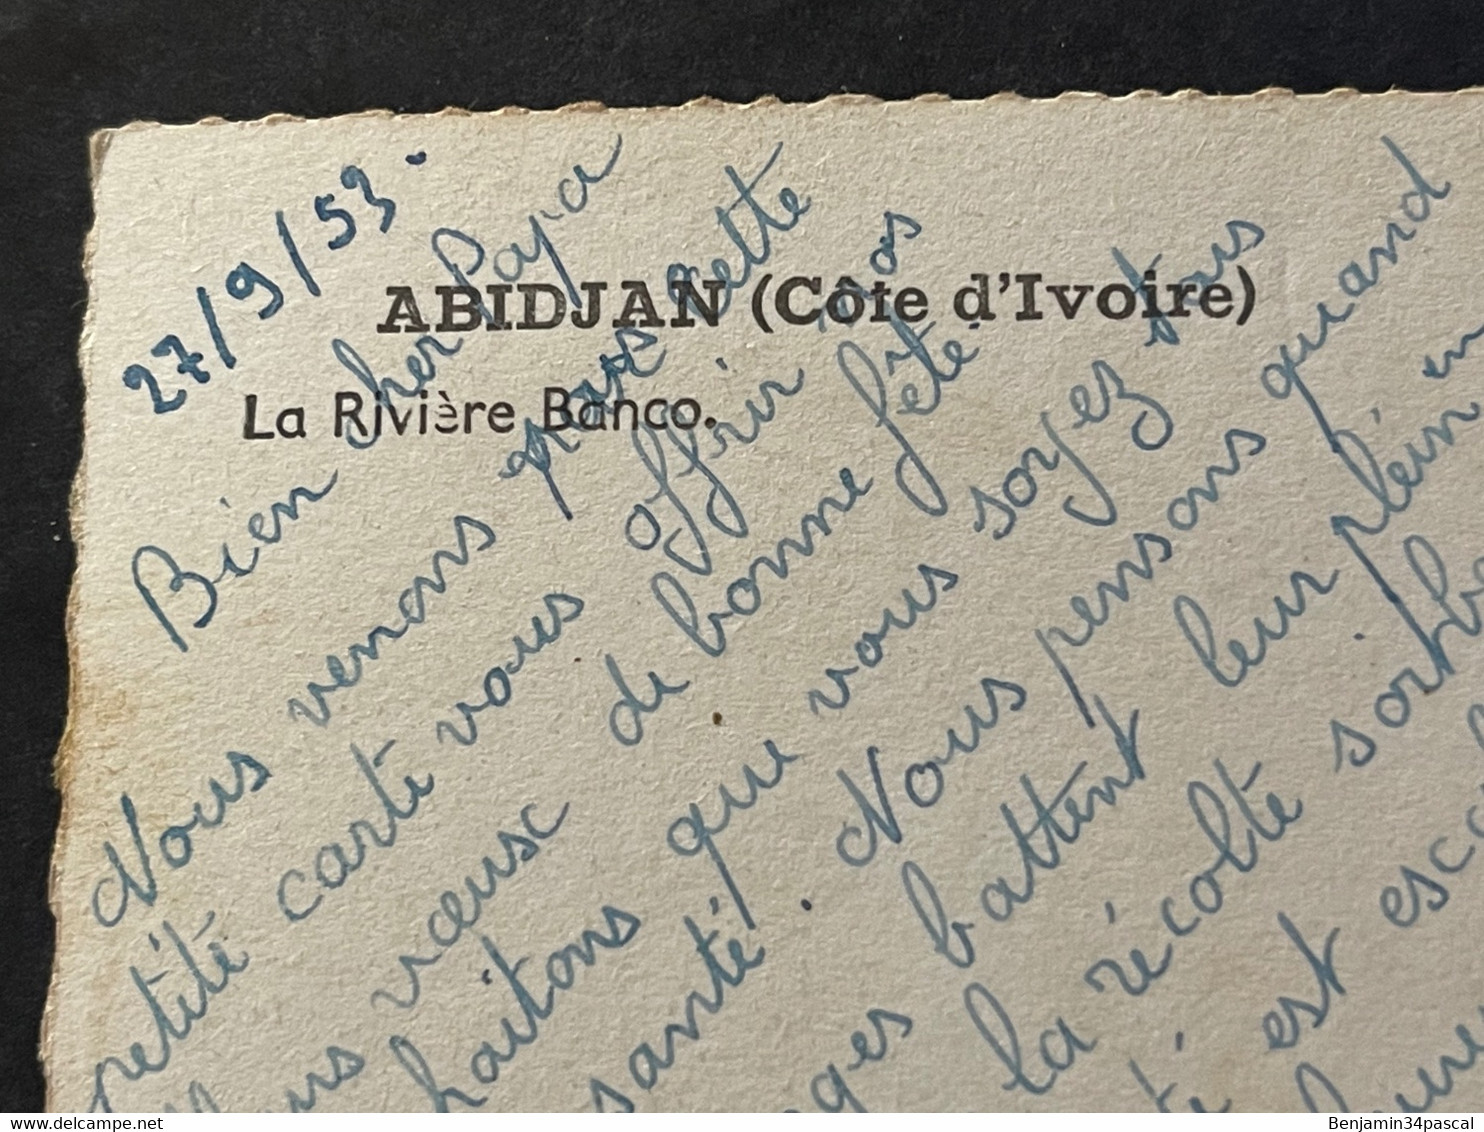 27/9/53.
ABIDJAN (Côte d'Ivoire)
La Rivière Banco.
Bien cher Papa
Nous venons par cette
petite carte vous offrir nos
vœux de bonne fête.
haitons que vous soyez tous
santé. Nous pensons quand
ges battent leur plein
la récolte
est
Benjamin34pascal